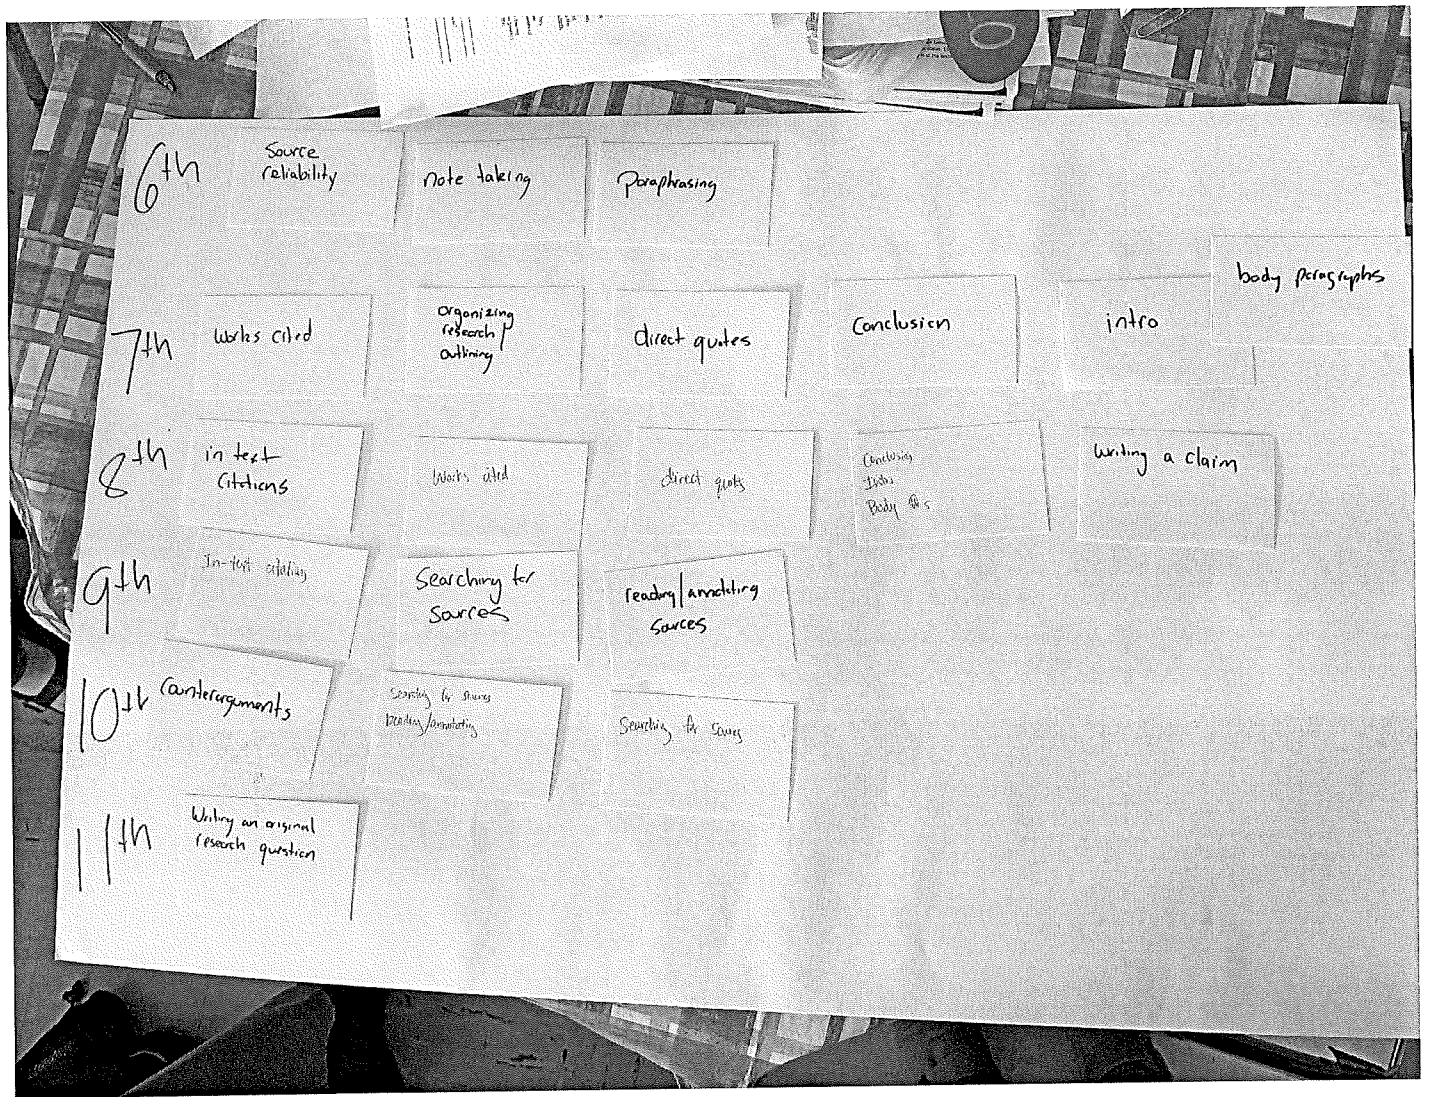 6th
Source
reliability
note taking
Paraphrasing
7th
Works cited
organizing
research/
outlining
direct quotes
Conclusion
intro
body paragraphs
8th
in text
Citations
Works cited
direct quotes
Conclusion
Intro
Body ¶s
Writing a claim
9th
In-text citations
Searching for
Sources
reading/annotating
Sources
10th
Counterarguments
Searching for sources
Reading/annotating
Searching for sources
11th
Writing an original
research question